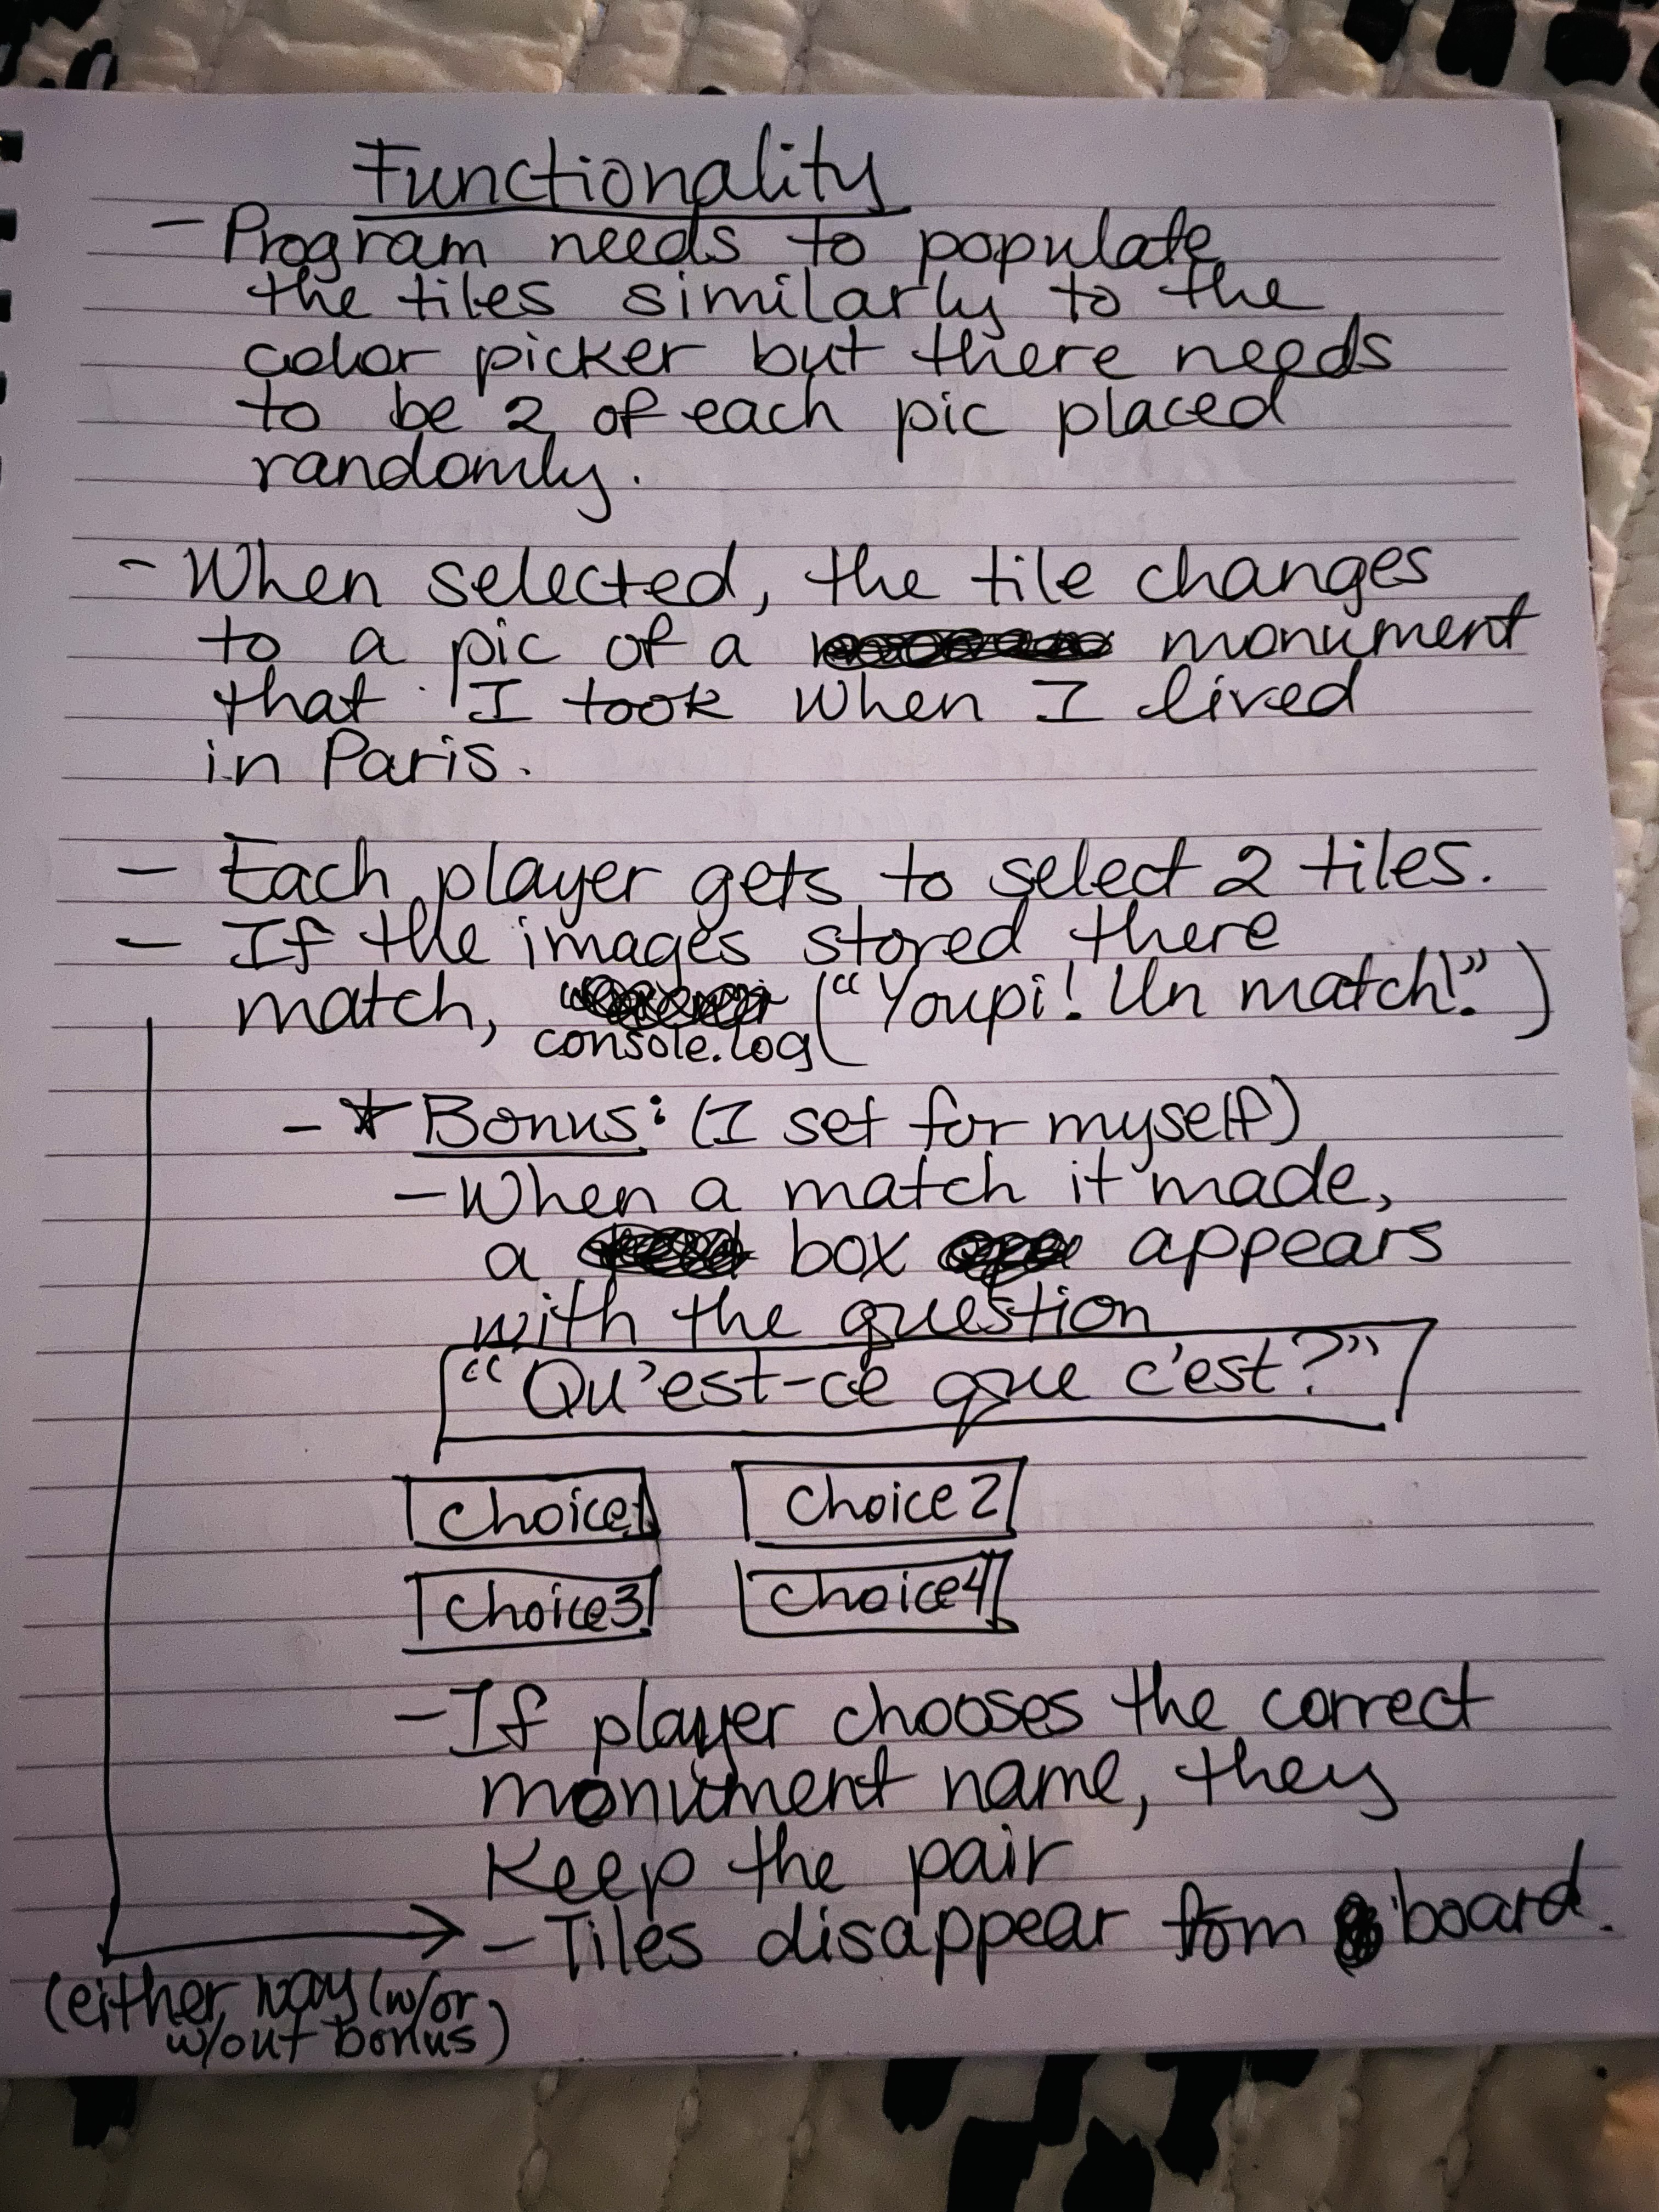 Functionality
- Program needs to populate
the tiles similarly to the
color picker but there needs
to be 2 of each pic placed
randomly.
- When selected, the tile changes
to a pic of a monument
that I took when I lived
in Paris.
- Each player gets to select 2 tiles.
- If the images stored there
match, console.log("Youpi! Un match!")
- ☆ Bonus: (I set for myself)
- When a match it made,
a box appears
with the question
"Qu'est-ce que c'est?"
Choice1 Choice 2
Choice3 Choice4
- If player chooses the correct
monument name, they
keep the pair
- Tiles disappear from board.
(either way (w/or
w/out bonus)